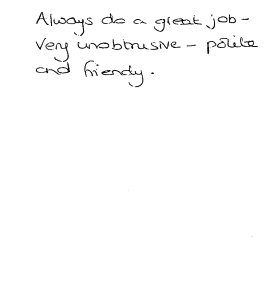 Always do a great job -
Very unobtrusive - polite
and friendy.